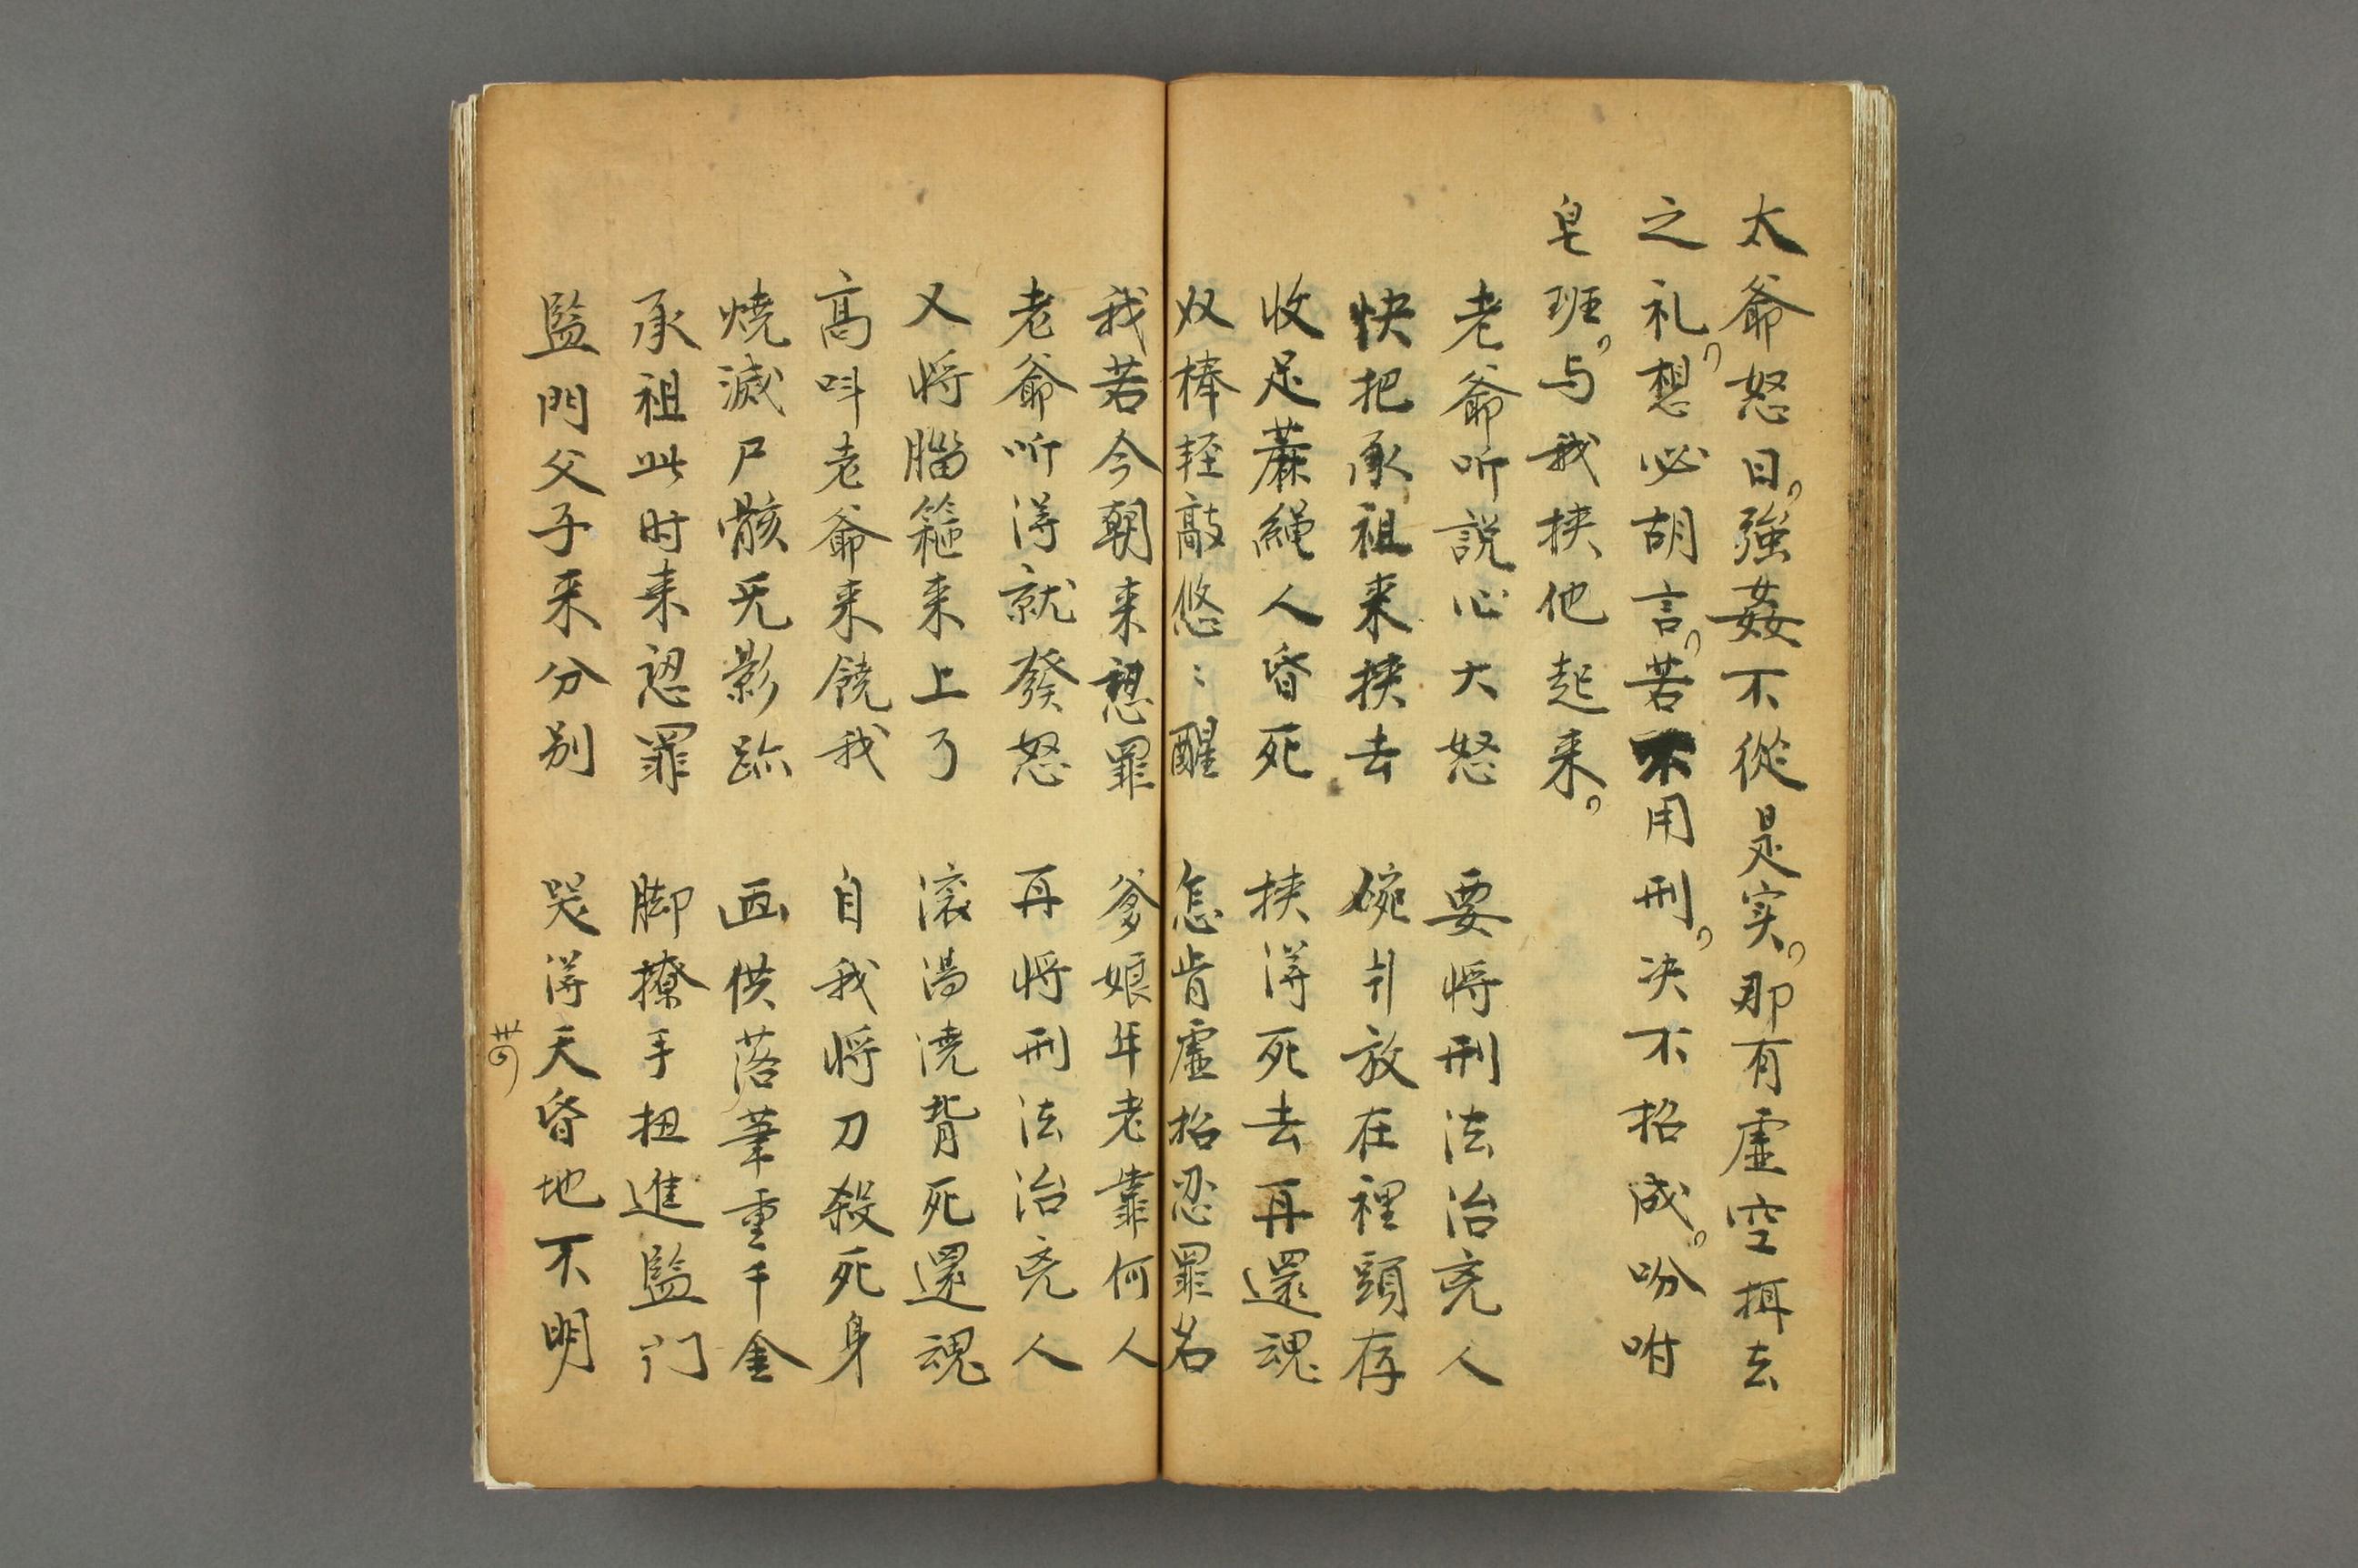 太爺怒曰，強姦不從是实，那有虛空揖去
之礼，想必胡言，若不用刑，决不招成。吩咐
皂班，与我挾他起来。
老爺听説心大怒　要將刑法治兇人
快把承祖来挾去　碗引放在裡頭存
收足蔴繩人昏死　挾淂死去再還魂
奴棒輕敲悠〻醒　怎肯虛招忍罪名
我若今朝来認罪　爹娘年老靠何人
老爺听淂就發怒　再將刑法治兇人
又將腦箍来上了　滚湯澆背死還魂
高呌老爺来饒我　自我將刀殺死身
燒滅尸骸无影跡　画供落筆重千金
承祖此时来認罪　脚撩手扭進監门
監門父子来分别　哭淂天昏地不明